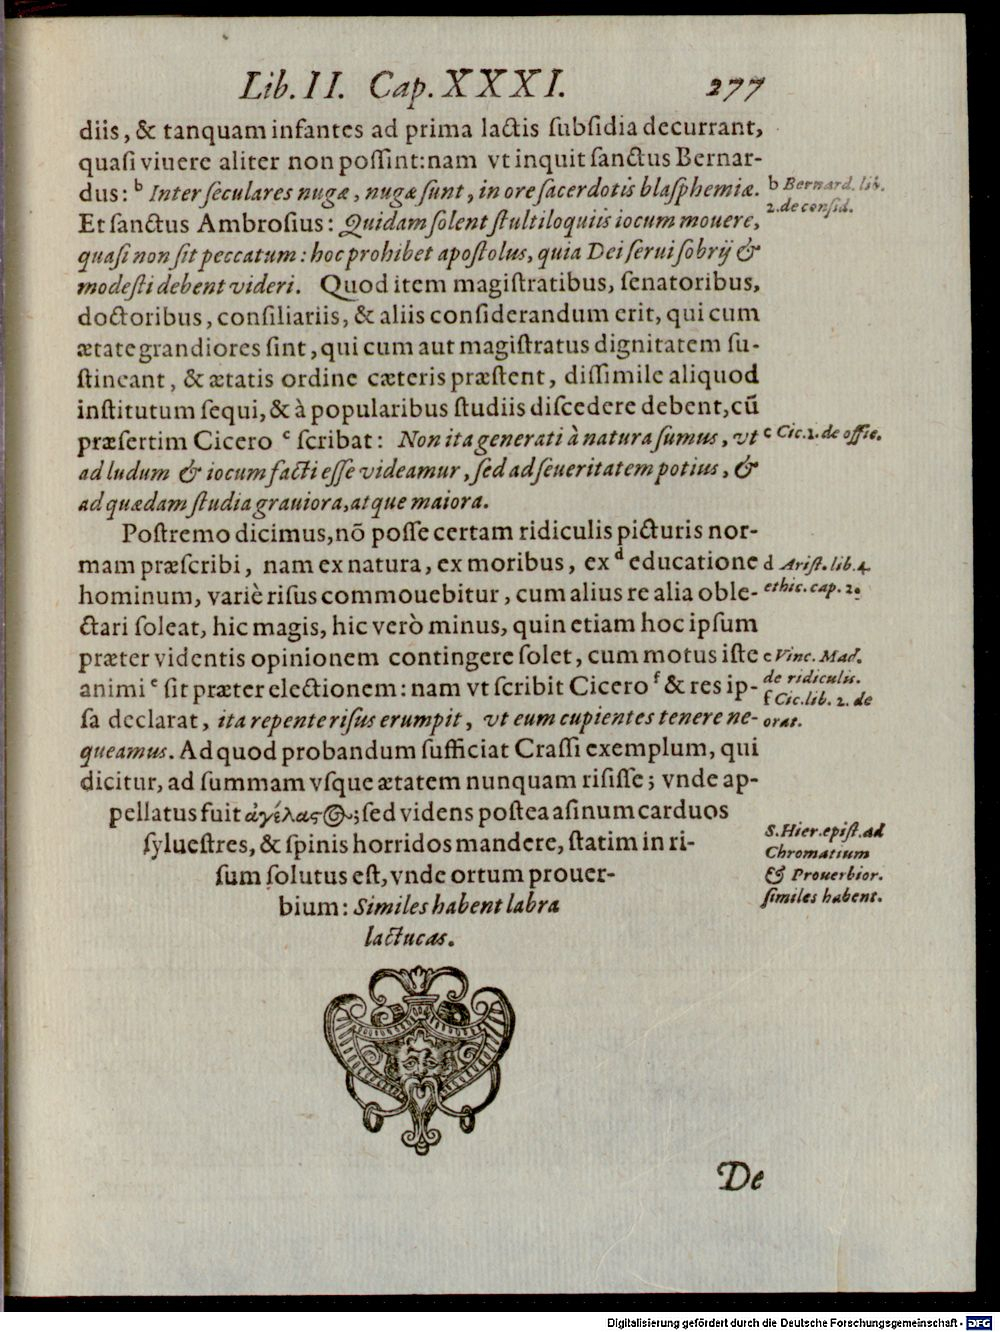 Lib. II. Cap. XXXI. 277
diis, & tanquam infantes ad prima lactis ſubſidia decurrant,
quaſi viuere aliter non poſſint: nam vt inquit ſanctus Bernar-
dus: b Inter ſeculares nugæ, nugæ ſunt, in ore ſacerdotis blaſphemiæ.
b Bernard. lib.
2. de conſid.
Et ſanctus Ambroſius: Quidam ſolent ſtultiloquiis iocum mouere,
quaſi non ſit peccatum: hoc prohibet apoſtolus, quia Dei ſerui ſobrij &
modeſti debent videri. Quod item magiſtratibus, ſenatoribus,
doctoribus, conſiliariis, & aliis conſiderandum erit, qui cum
ætate grandiores ſint, qui cum aut magiſtratus dignitatem ſu-
ſtineant, & ætatis ordine cæteris præſtent, diſſimile aliquod
inſtitutum ſequi, & à popularibus ſtudiis diſcedere debent, cū
præſertim Cicero c ſcribat: Non ita generati à natura ſumus, vt
c Cic. 1. de offic.
ad ludum & iocum facti eſſe videamur, ſed ad ſeueritatem potius, &
ad quædam ſtudia grauiora, atque maiora.
Poſtremo dicimus, nō poſſe certam ridiculis picturis nor-
mam præſcribi, nam ex natura, ex moribus, ex d educatione
d Ariſt. lib. 4.
ethic. cap. 2.
hominum, variè riſus commouebitur, cum alius re alia oble-
ctari ſoleat, hic magis, hic verò minus, quin etiam hoc ipſum
præter videntis opinionem contingere ſolet, cum motus iſte
e Vinc. Mad.
de ridiculis.
animi e ſit præter electionem: nam vt ſcribit Cicero f & res ip-
f Cic. lib. 2. de
orat.
ſa declarat, ita repente riſus erumpit, vt eum cupientes tenere ne-
queamus. Ad quod probandum ſufficiat Craſſi exemplum, qui
dicitur, ad ſummam vſque ætatem nunquam riſiſſe; vnde ap-
pellatus fuit ἀγέλαςος; ſed videns poſtea aſinum carduos
ſylueſtres, & ſpinis horridos mandere, ſtatim in ri-
ſum ſolutus eſt, vnde ortum prouer-
bium: Similes habent labra
lactucas.
S. Hier. epiſt. ad
Chromatium
& Prouerbior.
ſimiles habent.
De
Digitalisierung gefördert durch die Deutsche Forschungsgemeinschaft - DFG